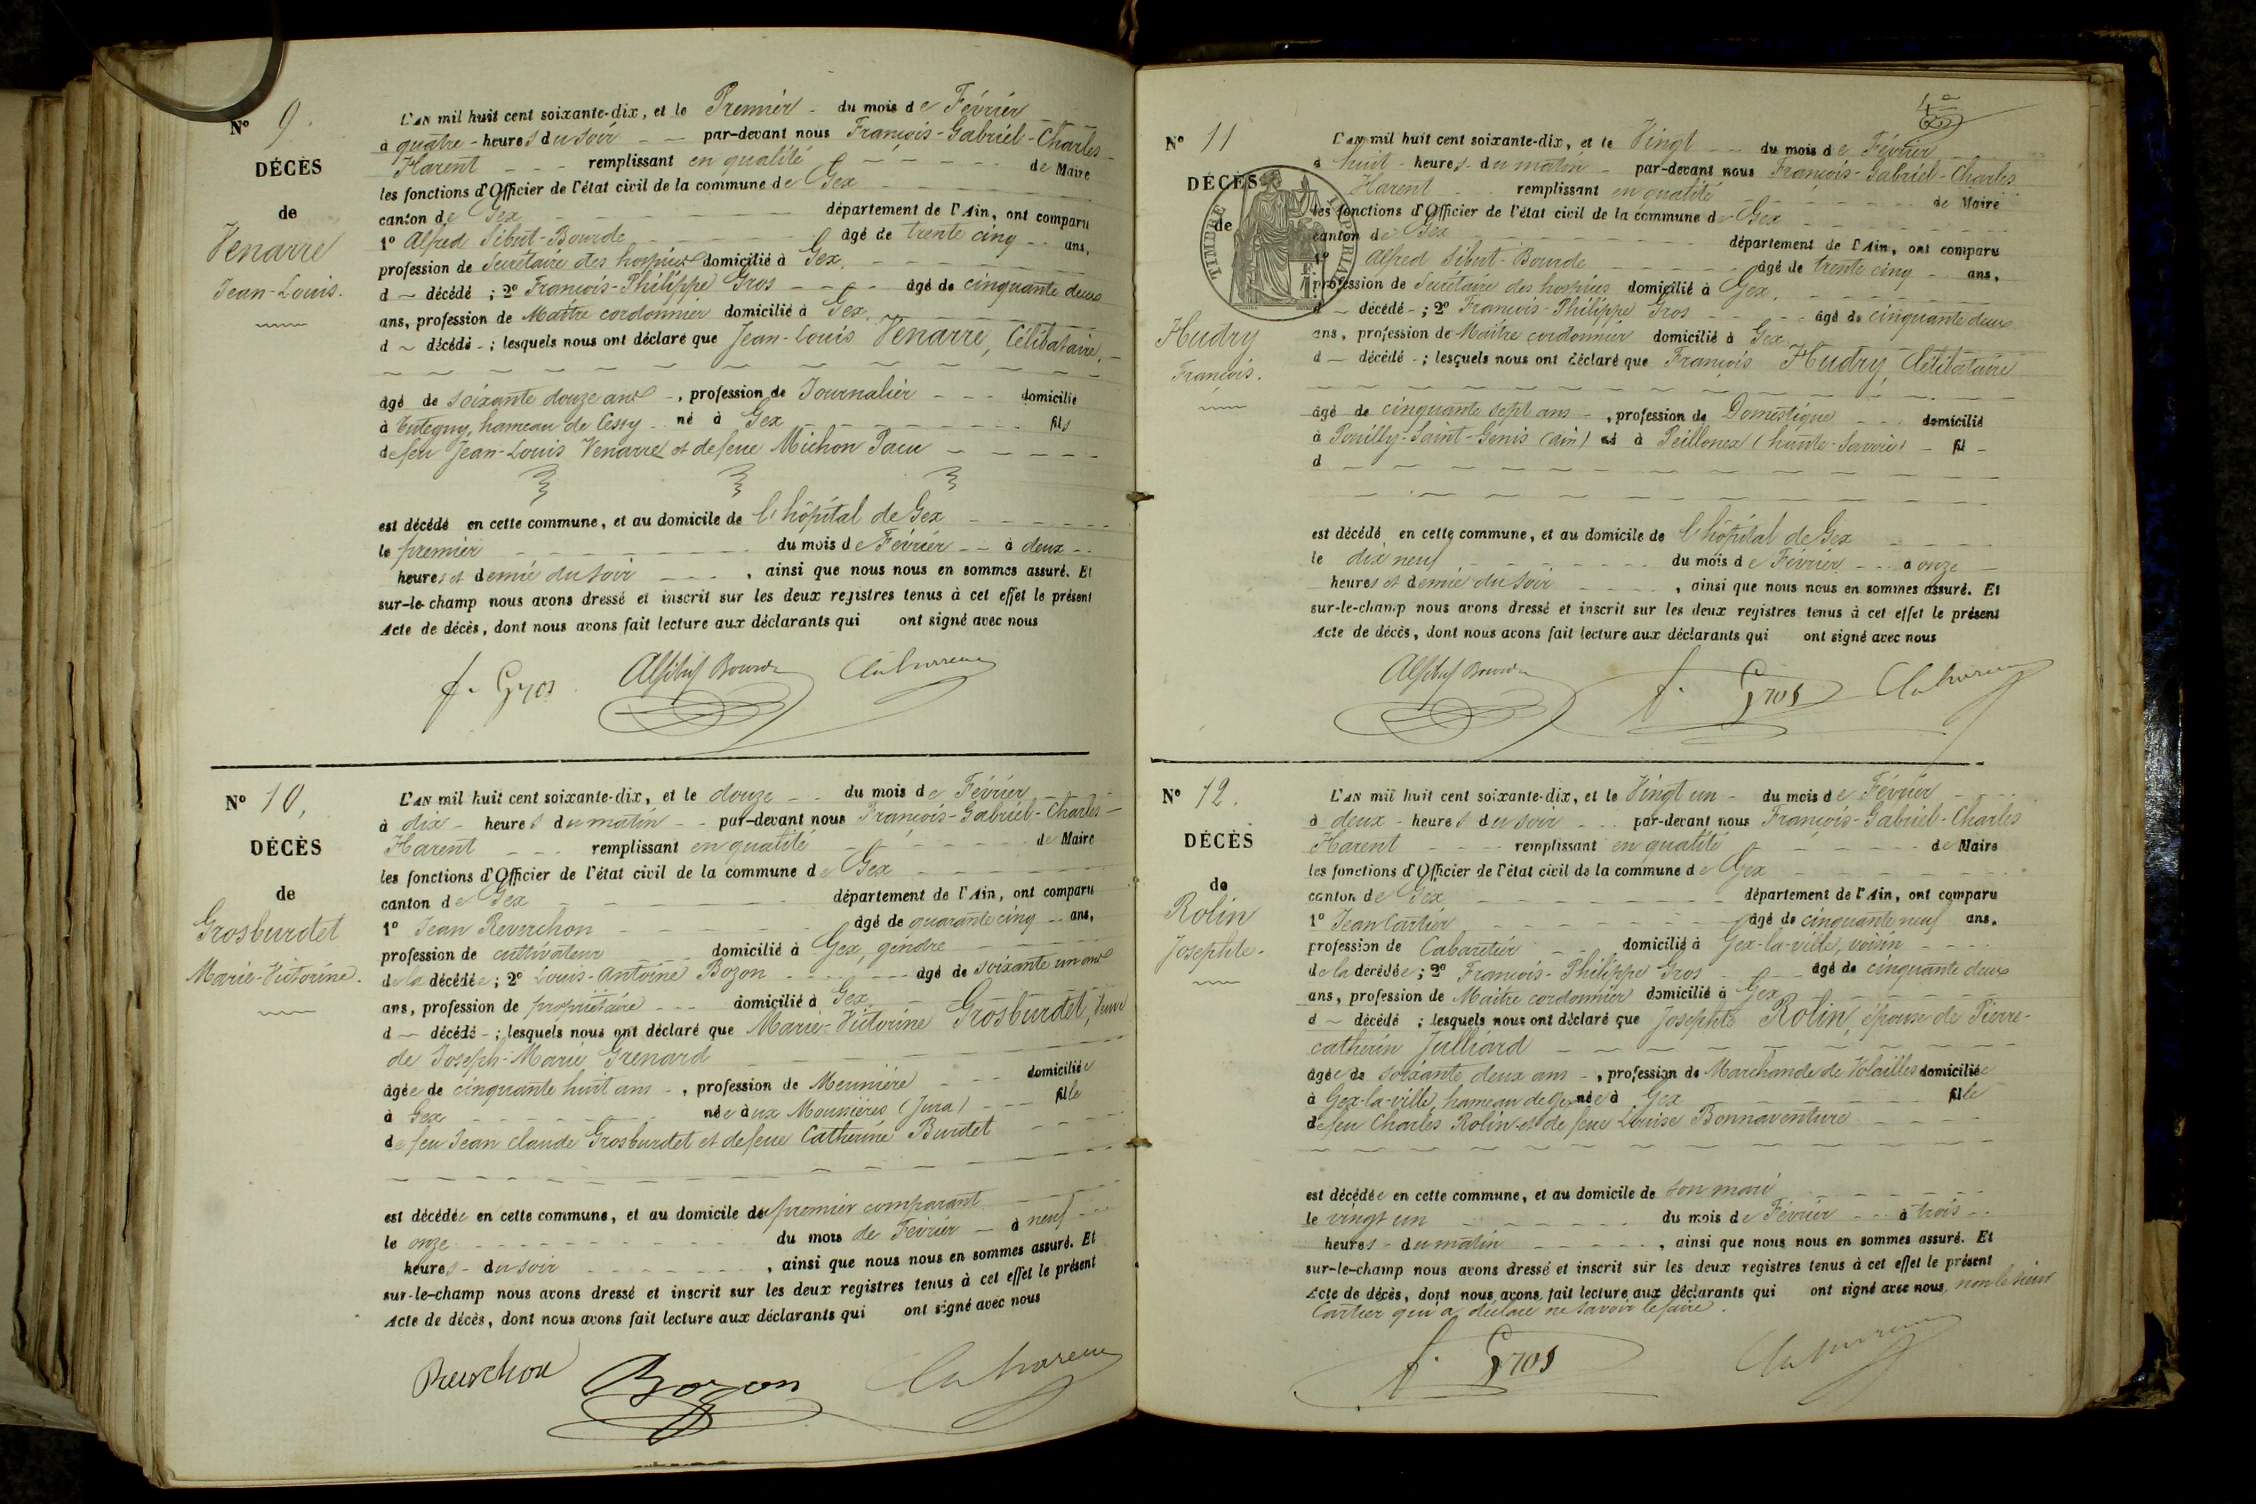 N° 9.
DÉCÈS
de
Venarre
Jean-Louis.
L'AN mil huit cent soixante-dix, et le Premier du mois de Février
à quatre heures du soir par-devant nous François-Gabriel-Charles
Harent remplissant en qualité de Maire
les fonctions d'Officier de l'état civil de la commune de Gex
canton de Gex département de l'Ain, ont comparu
1° Alfred Sibut-Bourde âgé de trente cinq ans,
profession de Secrétaire des hospices domicilié à Gex.
d décédé ; 2° François-Philippe Gros âgé de cinquante deux
ans, profession de Maître cordonnier domicilié à Gex.
d décédé ; lesquels nous ont déclaré que Jean-Louis Venarre, Célibataire,
âgé de soixante douze ans, profession de Journalier domicilié
à hameau de Cessy né à Gex fils
de feu Jean-Louis Venarre et de feue Michon Pacu
est décédé en cette commune, et au domicile de l'hôpital de Gex
le premier du mois de Février à deux
heures et demie du soir, ainsi que nous nous en sommes assuré. Et
sur-le-champ nous avons dressé et inscrit sur les deux registres tenus à cet effet le présent
Acte de décès, dont nous avons fait lecture aux déclarants qui ont signé avec nous
f. Gros Alf Sibut Bourde Ch harent
N° 10.
DÉCÈS
de
Grosburdet
Marie-Victorine.
L'AN mil huit cent soixante-dix, et le douze du mois de Février
à dix heures du matin par-devant nous François-Gabriel-Charles
Harent remplissant en qualité de Maire
les fonctions d'Officier de l'état civil de la commune de Gex
canton de Gex département de l'Ain, ont comparu
1° Jean Reverchon âgé de quarante cinq ans,
profession de cultivateur domicilié à Gex, gendre
de la décédée ; 2° Louis-Antoine Bozon âgé de soixante un ans
ans, profession de propriétaire domicilié à Gex.
d décédé ; lesquels nous ont déclaré que Marie-Victorine Grosburdet, Veuve
de Joseph-Marie Grenard
âgée de cinquante huit ans, profession de Meunière domiciliée
à Gex née aux Mounières (Jura) fille
de feu Jean Claude Grosburdet et de feue Catherine Burdet
est décédée en cette commune, et au domicile du premier comparant
le onze du mois de Février à neuf
heures du soir, ainsi que nous nous en sommes assuré. Et
sur-le-champ nous avons dressé et inscrit sur les deux registres tenus à cet effet le présent
Acte de décès, dont nous avons fait lecture aux déclarants qui ont signé avec nous
Reverchon Bozon Ch harent
N° 11
DÉCÈS
de
Hudry
François.
TIMBRE IMPÉRIAL
L'AN mil huit cent soixante-dix, et le Vingt du mois de Février
à huit heures du matin par-devant nous François-Gabriel-Charles
Harent remplissant en qualité de Maire
les fonctions d'Officier de l'état civil de la commune de Gex
canton de Gex département de l'Ain, ont comparu
1° Alfred Sibut-Bourde âgé de trente cinq ans,
profession de Secrétaire des hospices domicilié à Gex.
d décédé ; 2° François-Philippe Gros âgé de cinquante deux
ans, profession de Maître cordonnier domicilié à Gex
d décédé ; lesquels nous ont déclaré que François Hudry, Célibataire
âgé de cinquante sept ans, profession de Domestique domicilié
à Pouilly-Saint-Genis (Ain) né à Peillonex (haute-Savoie) fil
d
est décédé en cette commune, et au domicile de l'hôpital de Gex
le dix neuf du mois de Février à onze
heures et demie du soir, ainsi que nous nous en sommes assuré. Et
sur-le-champ nous avons dressé et inscrit sur les deux registres tenus à cet effet le présent
Acte de décès, dont nous avons fait lecture aux déclarants qui ont signé avec nous
Alf Sibut Bourde f. Gros Ch harent
N° 12.
DÉCÈS
de
Rolin
Josephte.
L'AN mil huit cent soixante-dix, et le Vingt un du mois de Février
à deux heures du soir par-devant nous François-Gabriel-Charles
Harent remplissant en qualité de Maire
les fonctions d'Officier de l'état civil de la commune de Gex
canton de Gex département de l'Ain, ont comparu
1° Jean Cartier âgé de cinquante neuf ans.
profession de Cabaretier domicilié à Gex-la-ville, voisin
de la décédée ; 2° François-Philippe Gros âgé de cinquante deux
ans, profession de Maître cordonnier domicilié à Gex
d décédé ; lesquels nous ont déclaré que Josephte Rolin, épouse de Pierre-
catherin Julliard
âgée de soixante deux ans, profession de Marchande de Volailles domiciliée
à Gex-la-ville, hameau de Gex née à Gex fille
de feu Charles Rolin et de feue Louise Bonnaventure
est décédée en cette commune, et au domicile de son mari
le vingt un du mois de Février à trois
heures du matin, ainsi que nous nous en sommes assuré. Et
sur-le-champ nous avons dressé et inscrit sur les deux registres tenus à cet effet le présent
Acte de décès, dont nous avons fait lecture aux déclarants qui ont signé avec nous non le sieur
Cartier qui a déclaré ne savoir le faire.
f. Gros Ch harent